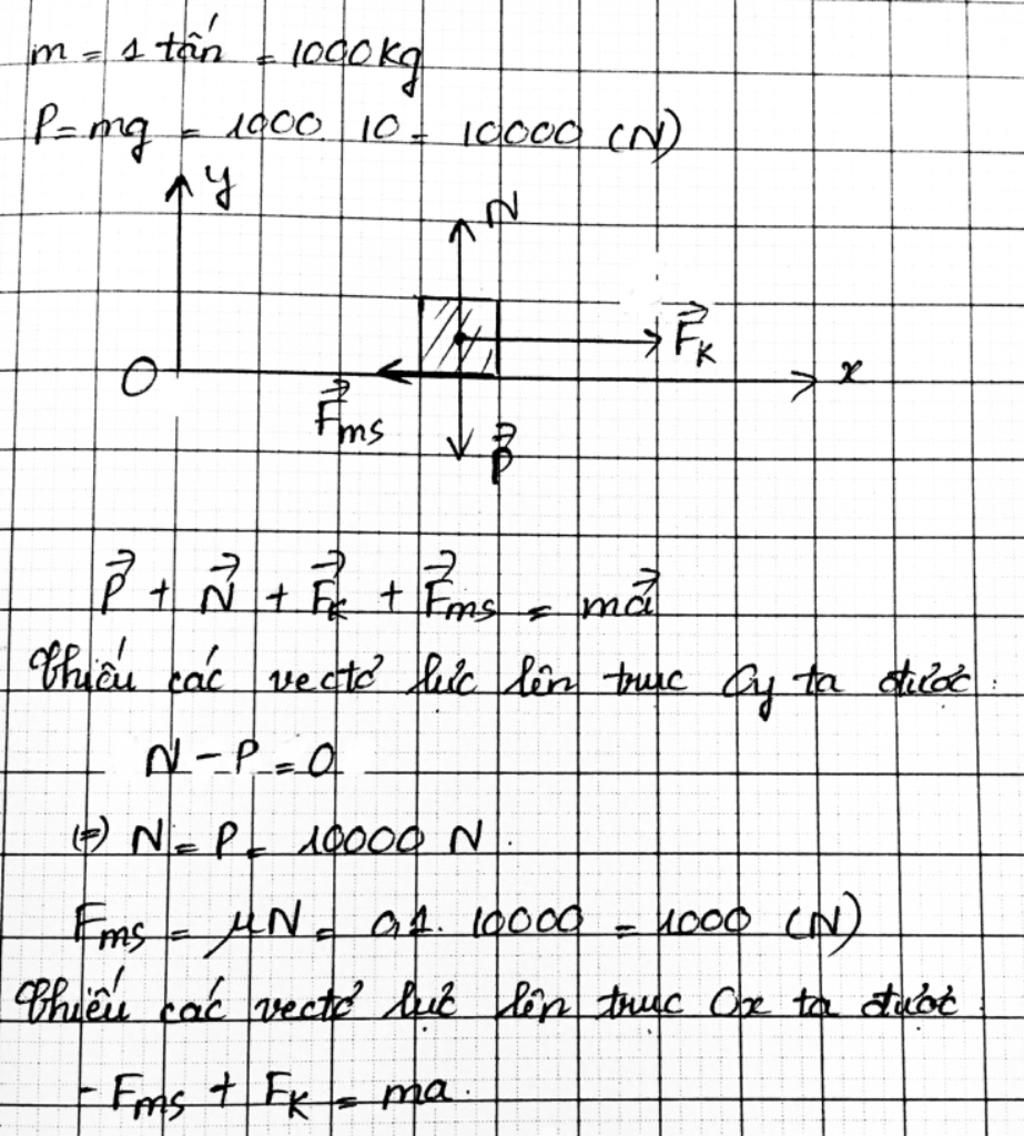 m = 1 tấn = 1000kg
P = mg = 1000. 10 = 10000 (N)
y
N
F⃗K
O
x
F⃗ms
P⃗
P⃗ + N⃗ + F⃗k + F⃗ms = ma⃗
Chiếu các vectơ lực lên trục Oy ta được :
N - P = 0
(=) N = P = 10000 N.
Fms = μN = 0,1. 10000 = 1000 (N)
Chiếu các vectơ lực lên trục Ox ta được :
- Fms + FK = ma.